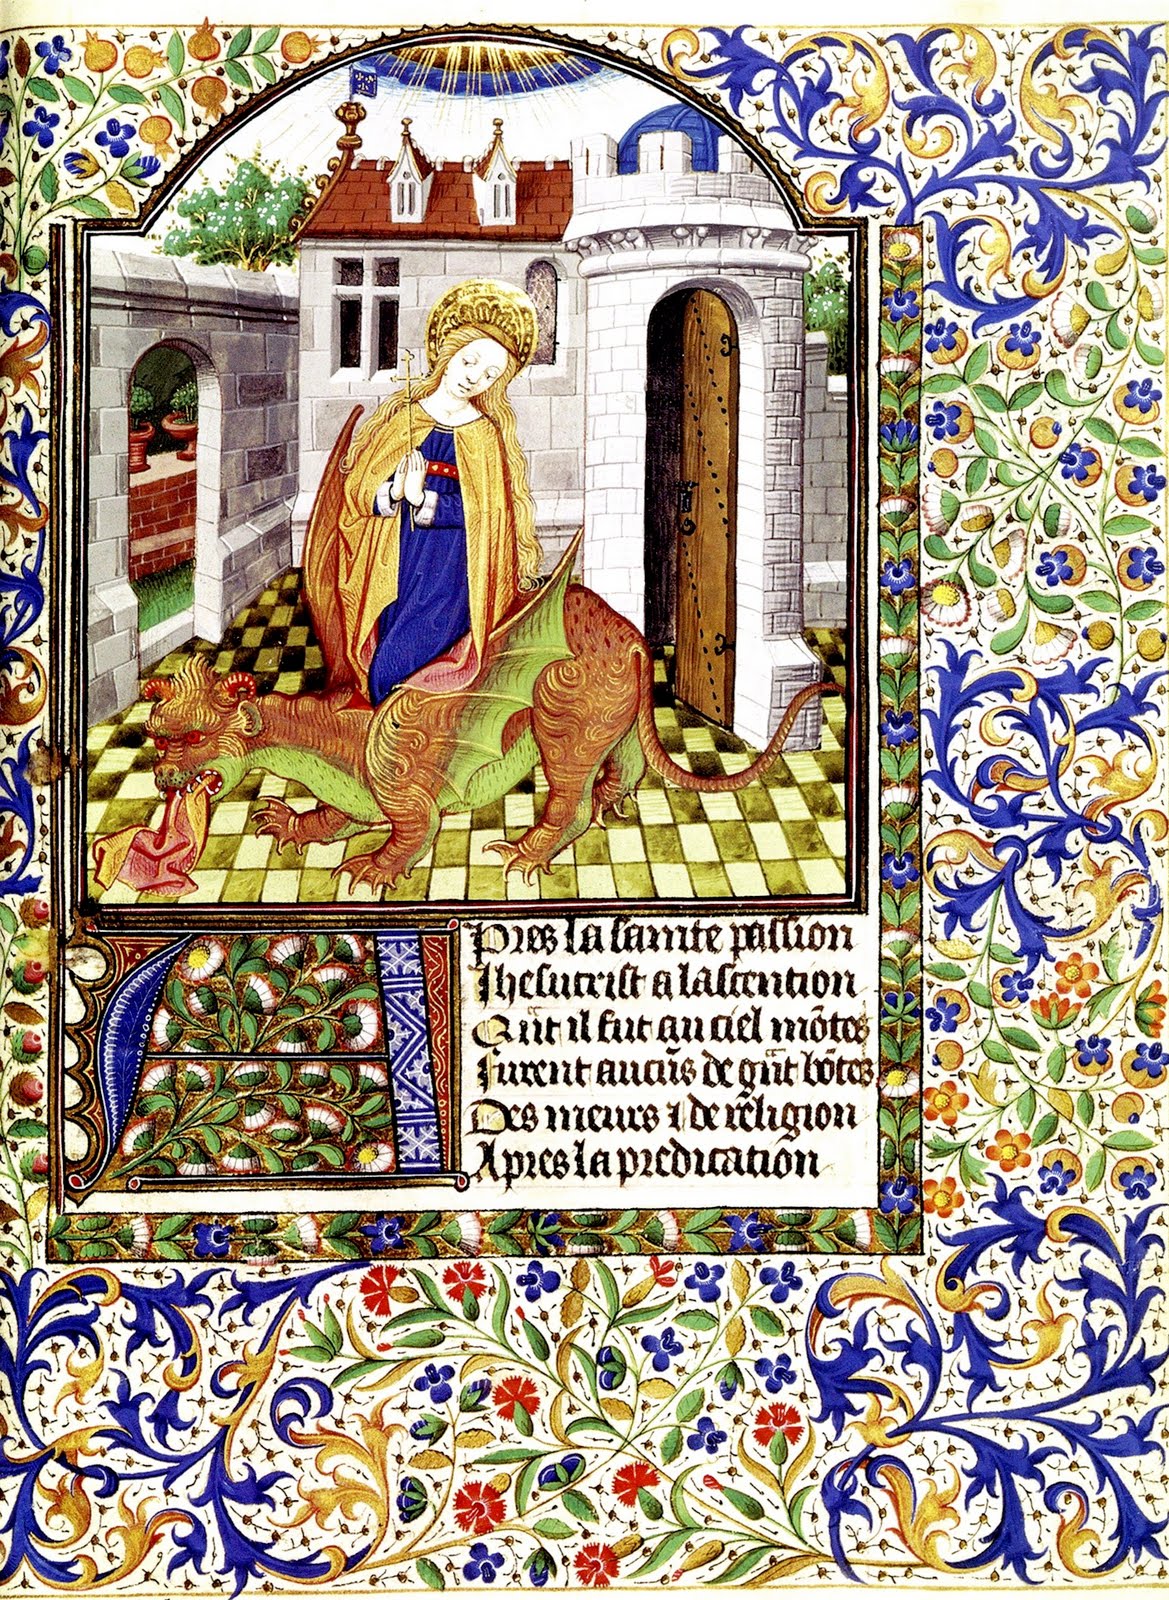 APres la sainte passion
Ihesucrist a lascention
Qãt il fut au ciel mõtes
Furent aucũs de grãt bõtes
Des meurs ⁊ de religion
Apres la predication